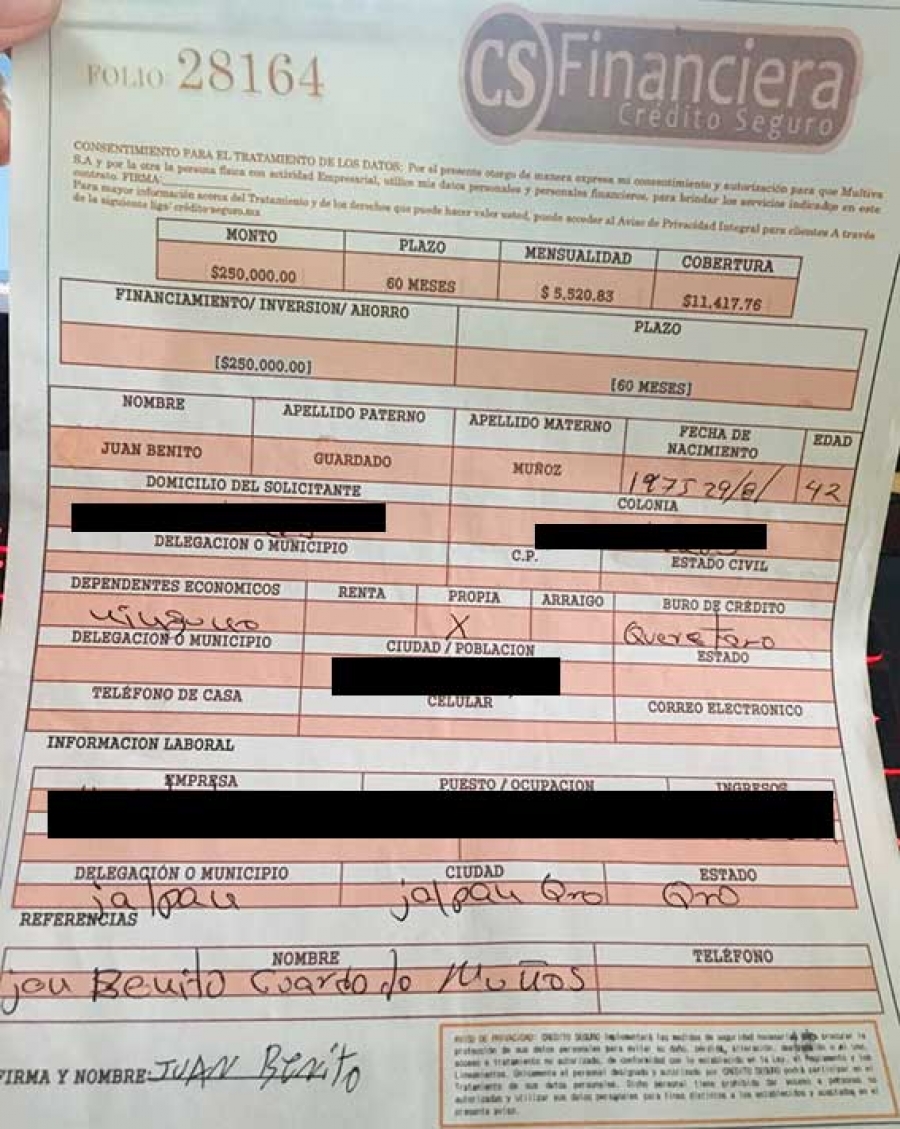 FOLIO 28164
CS Financiera
Crédito Seguro
CONSENTIMIENTO PARA EL TRATAMIENTO DE LOS DATOS: Por el presente otorgo de manera expresa mi consentimiento y autorización para que Multiva
S.A y por la otra la persona física con actividad Empresarial, utilice mis datos personales y personales financieros, para brindar los servicios indicados en este
contrato. FIRMA:
Para mayor información acerca del Tratamiento y de los derechos que puede hacer valer usted, puede acceder al Aviso de Privacidad Integral para clientes A través
de la siguiente liga: crédito seguro.mx
MONTO PLAZO MENSUALIDAD COBERTURA
$250,000.00 60 MESES $ 5,520.83 $11,417.76
FINANCIAMIENTO/ INVERSION/ AHORRO PLAZO
[$250,000.00] [60 MESES]
NOMBRE APELLIDO PATERNO APELLIDO MATERNO FECHA DE NACIMIENTO EDAD
JUAN BENITO GUARDADO MUÑOZ 1975 29/8/ 42
DOMICILIO DEL SOLICITANTE COLONIA
DELEGACION O MUNICIPIO C.P. ESTADO CIVIL
DEPENDENTES ECONOMICOS RENTA PROPIA ARRAIGO BURO DE CRÉDITO
ninguno X Queretaro
DELEGACION O MUNICIPIO CIUDAD / POBLACION ESTADO
TELÉFONO DE CASA CELULAR CORREO ELECTRONICO
INFORMACION LABORAL
EMPRESA PUESTO / OCUPACION INGRESOS
DELEGACIÓN O MUNICIPIO CIUDAD ESTADO
jalpan jalpan Qro Qro
REFERENCIAS
NOMBRE TELÉFONO
Benito Guardado Muños
FIRMA Y NOMBRE: JUAN BENito
AVISO DE PRIVACIDAD: CREDITO SEGURO implementará las medidas de seguridad necesarias para procurar la
protección de sus datos personales para evitar su daño, pérdida, alteración, destrucción o el uso,
acceso o tratamiento no autorizado, de conformidad con lo establecido en la Ley, el Reglamento y los
Lineamientos. Únicamente el personal designado y autorizado por CREDITO SEGURO podrá participar en el
Tratamiento de sus datos personales. Dicho personal tiene prohibido dar acceso a personas no
autorizadas y utilizar sus datos personales para fines distintos a los establecidos y aceptados en el
presente aviso.